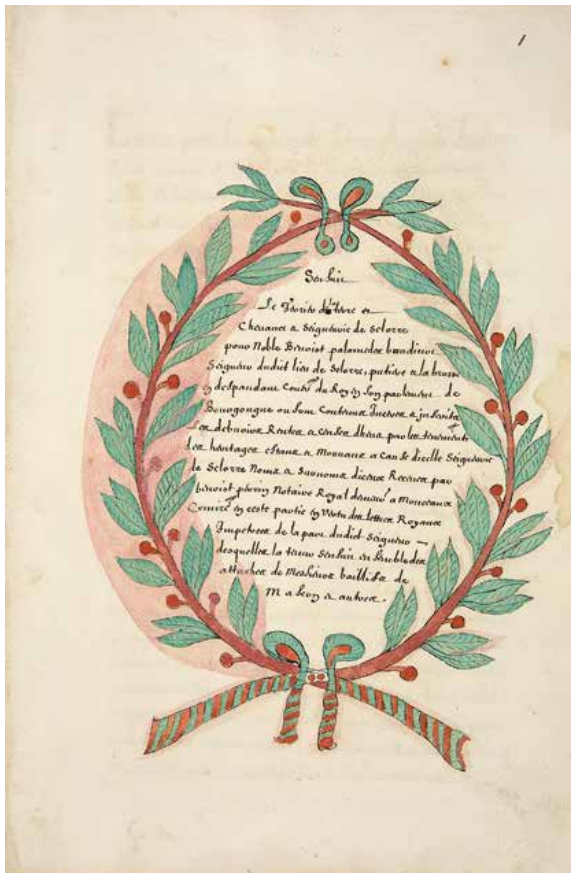 1
Sensuit
Le Terrier de Terre et
Chevance et Seigneurie de Selorre
pour Noble Benoist palamedes baudinot
Seigneur dudict lieu de Selorre, putiere et la brosse
en despandant Conser du Roy en son parlement de
Bourgongne ou sont Contenus
Les debvoirs Rentes et censes dheus par les tenementiers
des heritages estans et Mouvans a cause dicelle Seigneurie
de Selorre Noms et Surnoms diceux Receus par
benoist perrin Notaire Royal demeurt a Monceaux
Comisre en ceste partie en Vertu des lettres Royaux
Impetrees de la part dudict Seigneur —
desquelles la teneur Sensuit ensemble des
attaches de Messieurs baillifs de
Mascon et autres.